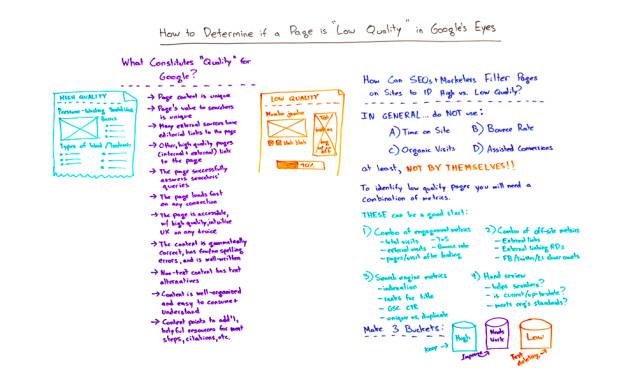 How to Determine if a Page is "Low Quality" in Google's Eyes
What Constitutes "Quality" for
Google?
HIGH QUALITY
Pressure-Washing
Basics
Types of
LOW QUALITY
→ Page content is unique
→ Page's value to searchers
is unique
→ Many external sources have
editorial links to the page
→ Other, high quality pages
(internal + external) link
to the page
→ The page successfully
answers searchers'
queries
→ The page loads fast
on any connection
→ The page is accessible,
w/ high quality, intuitive
UX on any device
→ The content is grammatically
correct, has few/no spelling
errors, and is well-written
→ Non-text content has text
alternatives
→ Content is well-organized
and easy to consume +
understand
→ Content points to add'l,
helpful resources for next
steps, citations, etc.
How Can SEOs + Marketers Filter Pages
on Sites to ID High vs. Low Quality?
IN GENERAL... do NOT use:
A) Time on Site B) Bounce Rate
C) Organic Visits D) Assisted Conversions
at least, NOT BY THEMSELVES!!
To identify low quality pages you will need a
combination of metrics.
THESE can be a good start:
1) Combo of engagement metrics
- total visits - ToS
- external visits - Bounce rate
- pages/visit after landing
2) Combo of off-site metrics
- External links
- External linking RDs
- FB/Twitter/LI share counts
3) Search engine metrics
- indexation
- ranks for title
- GSC CTR
- unique vs. duplicate
4) Hand review
- helps searchers?
- is current/up-to-date?
- meets org's standards?
Make 3 Buckets:
Keep →
High
Improve →
Needs
Work
Test
deleting →
Low